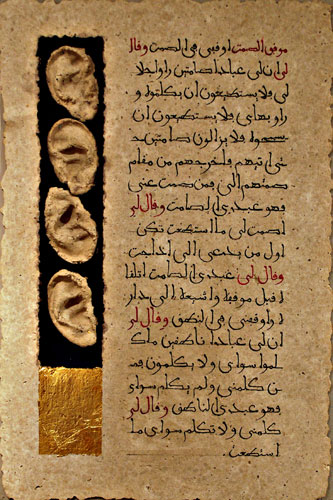 موقف الصمت اوقفني في الصمت وقال
لي ان لي عبادا صامتين راوا جلا
لي فلا يستطيعون ان يكلموه و
راوا بهائي فلا يستطيعون ان
يسبحوه فلا يزالون صامتين حـ
تى اتيهم فاخرجهم من مقام
صمتهم الي فمن صمت عني
فهو عبدي الصامت وقال لي
اصمت لي ما استطعت تكن
اول من يدعى الي اذا جئت
وقال لي عبدي الصامت اتلقا
ه قبل موقفه واشيعه الى دار
ه اوقفني في النطق وقال لي
ان لي عبادا ناطقين ما كـ
لموا سواي ولا يكلمون فمـ
ن كلمني ولم يكلم سواي
فهو عبدي الناطق وقال لي
كلمني ولا تكلم سواي ما
استطعت